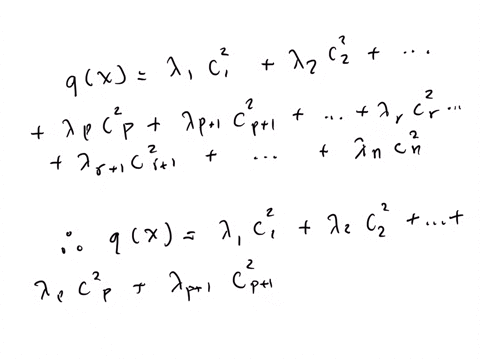 q(x) = λ₁ c₁² + λ₂ c₂² + ...
+ λₚ cₚ² + λₚ₊₁ cₚ₊₁² + ... + λᵣ cᵣ² ...
+ λᵣ₊₁ cᵣ₊₁² + ... + λₙ cₙ²
∴ q(x) = λ₁ c₁² + λ₂ c₂² + ... +
λₚ cₚ² + λₚ₊₁ cₚ₊₁²